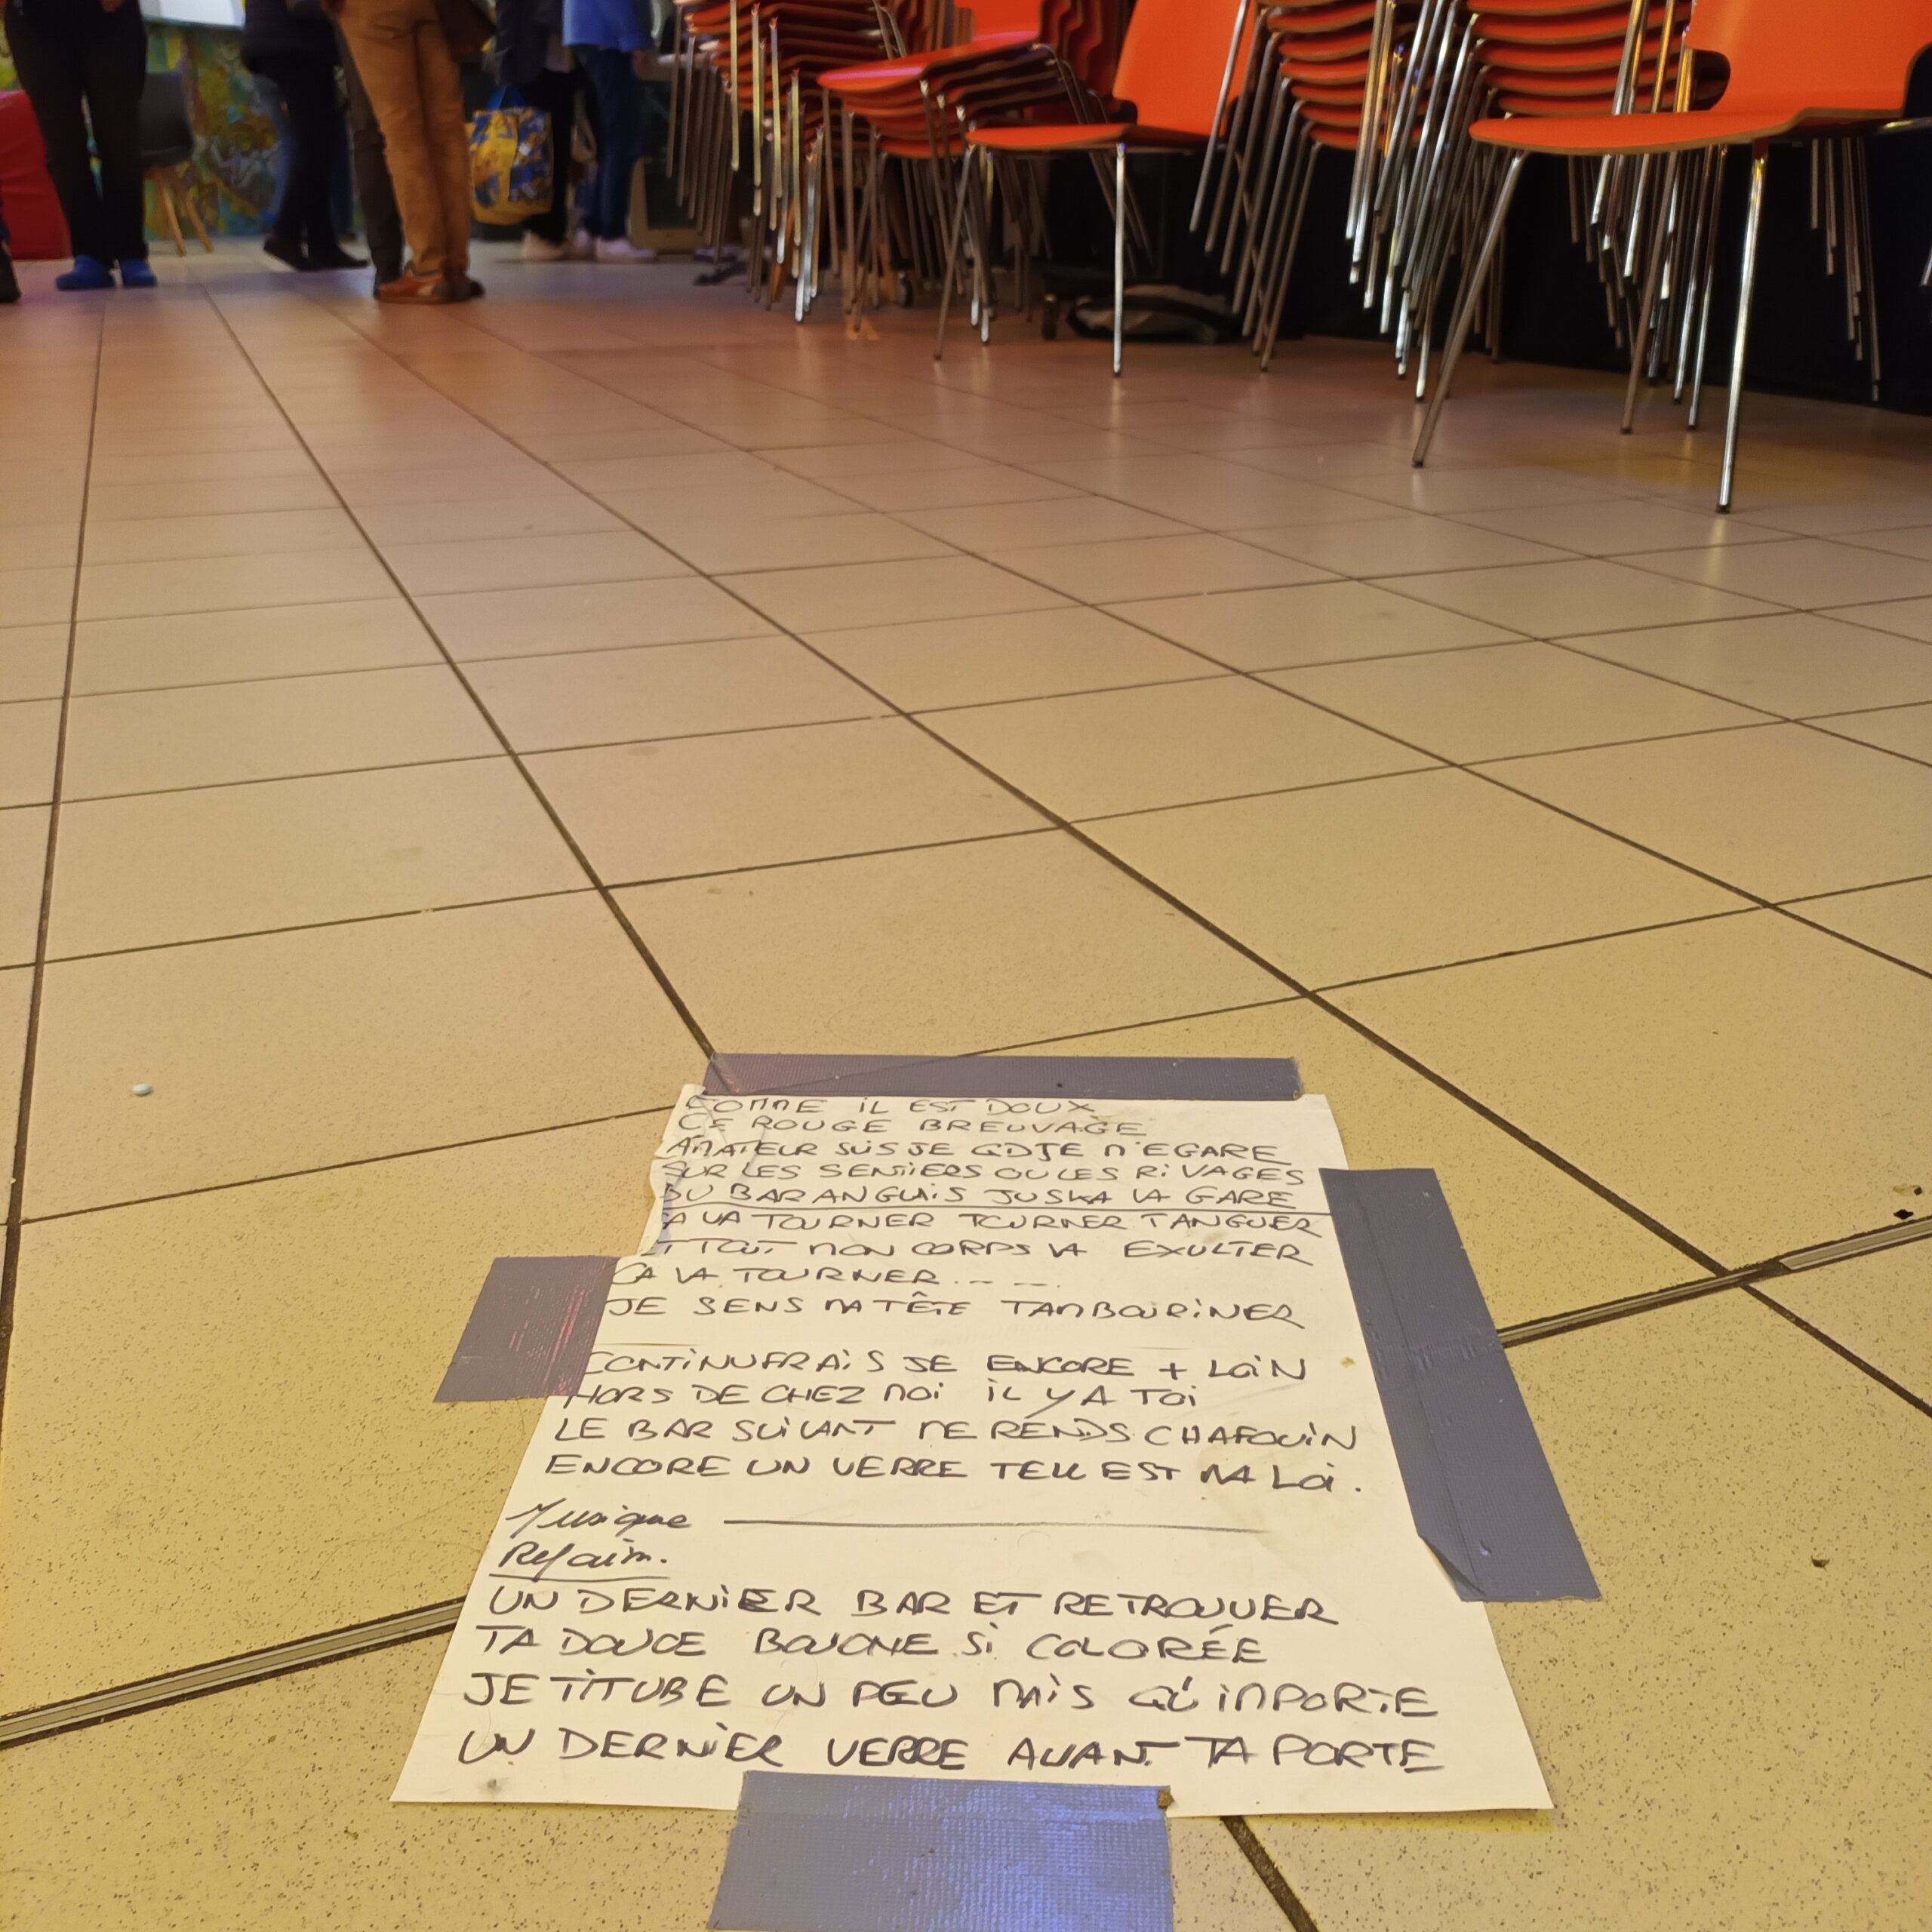 COMME IL EST DOUX
CE ROUGE BREUVAGE
AMATEUR SUIS JE QD JE M'EGARE
SUR LES SENTIERS OU LES RIVAGES
DU BAR ANGLAIS JUSKA LA GARE
ÇA VA TOURNER TOURNER TANGUER
ET TOUT MON CORPS VA EXULTER
ÇA VA TOURNER.....
JE SENS MA TÊTE TAMBOURINER
CONTINUERAIS JE ENCORE + LOIN
HORS DE CHEZ MOI IL Y A TOI
LE BAR SUIVANT ME RENDS CHAFOUIN
ENCORE UN VERRE TELLE EST MA LOI.
Musique
Refrain.
UN DERNIER BAR ET RETROUVER
TA DOUCE BOUCHE SI COLORÉE
JE TITUBE UN PEU MAIS QU'IMPORTE
UN DERNIER VERRE AVANT TA PORTE